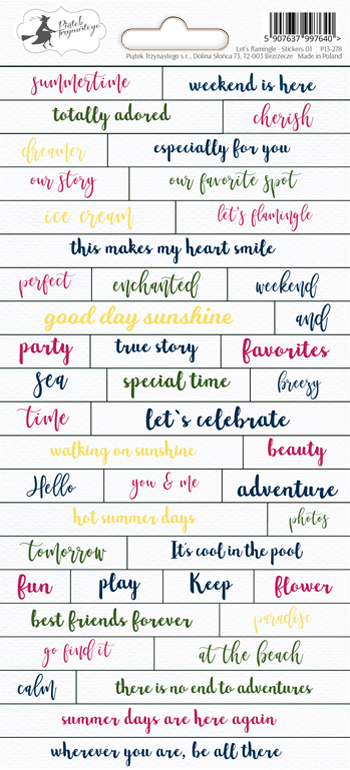 Piątek Trzynastego
5 907637 997640 >
Let's flamingle - Stickers 01 P13-278
Piątek Trzynastego s.c., Dolina Słońca 73, 72-003 Bezrzecze Made in Poland
summertime weekend is here
totally adored cherish
dreamer especially for you
our story our favorite spot
ice cream let's flamingle
this makes my heart smile
perfect enchanted weekend
good day sunshine and
party true story favorites
sea special time breezy
time let`s celebrate
walking on sunshine beauty
Hello you & me adventure
hot summer days photos
tomorrow It's cool in the pool
fun play Keep flower
best friends forever paradise
go find it at the beach
calm there is no end to adventures
summer days are here again
wherever you are, be all there